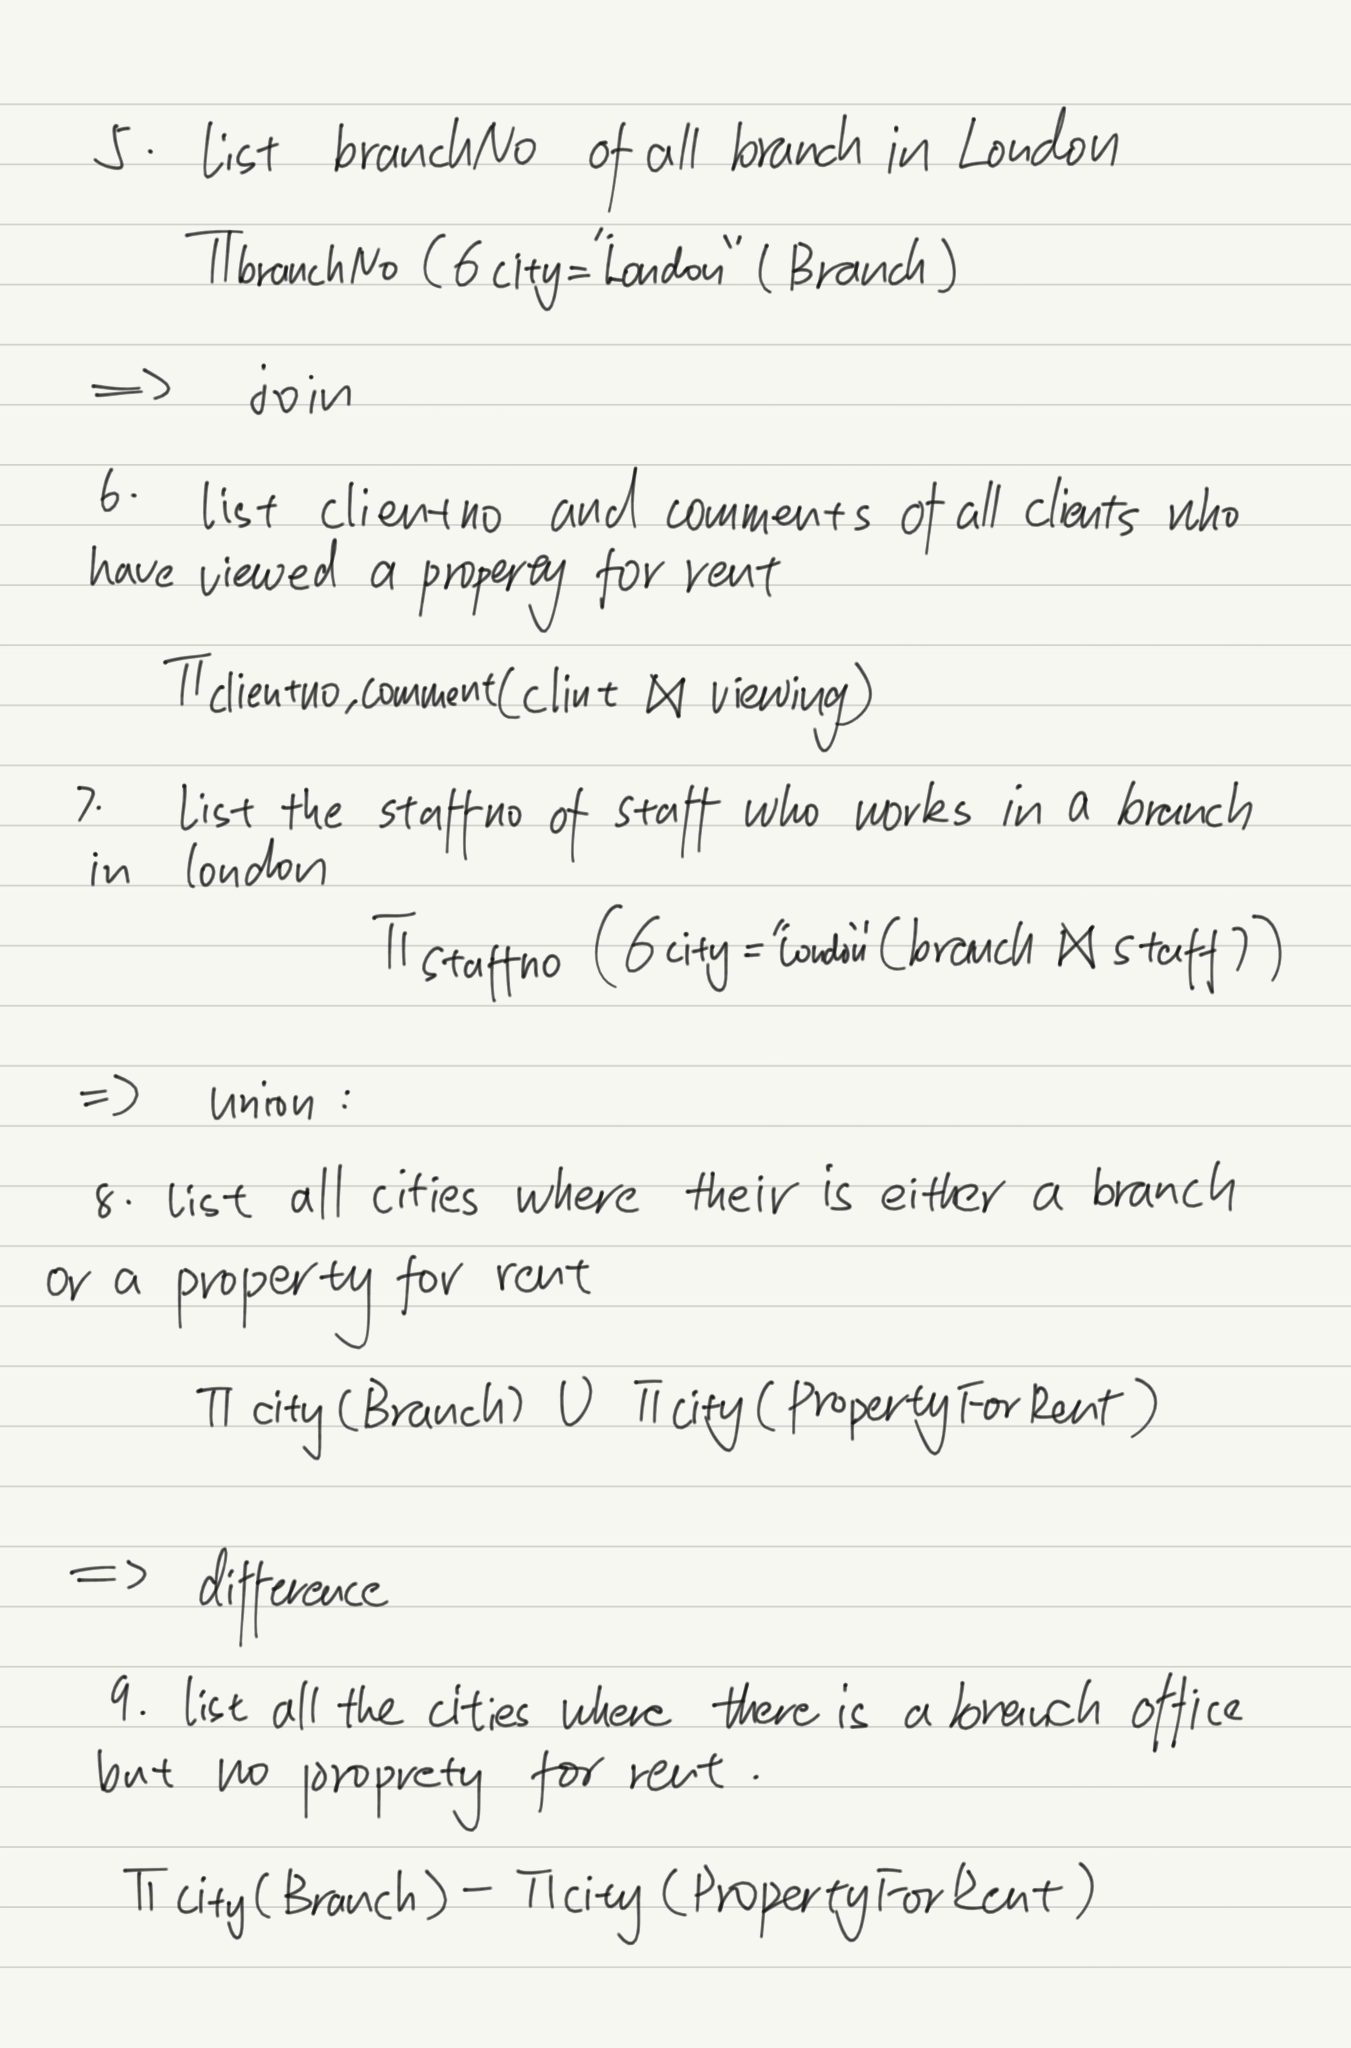 5. List branchNo of all branch in London
ΠbranchNo (σcity="London"(Branch)
=> join
6. List clientno and comments of all clients who
have viewed a property for rent
Πclientno,comment(clint ⋈ viewing)
7. List the staffno of staff who works in a branch
in london
Πstaffno (σcity="London"(branch ⋈ staff))
=> union :
8. List all cities where their is either a branch
or a property for rent
Πcity(Branch) ∪ Πcity(PropertyForRent)
=> difference
9. List all the cities where there is a branch office
but no proprety for rent .
Πcity(Branch) - Πcity(PropertyForRent)